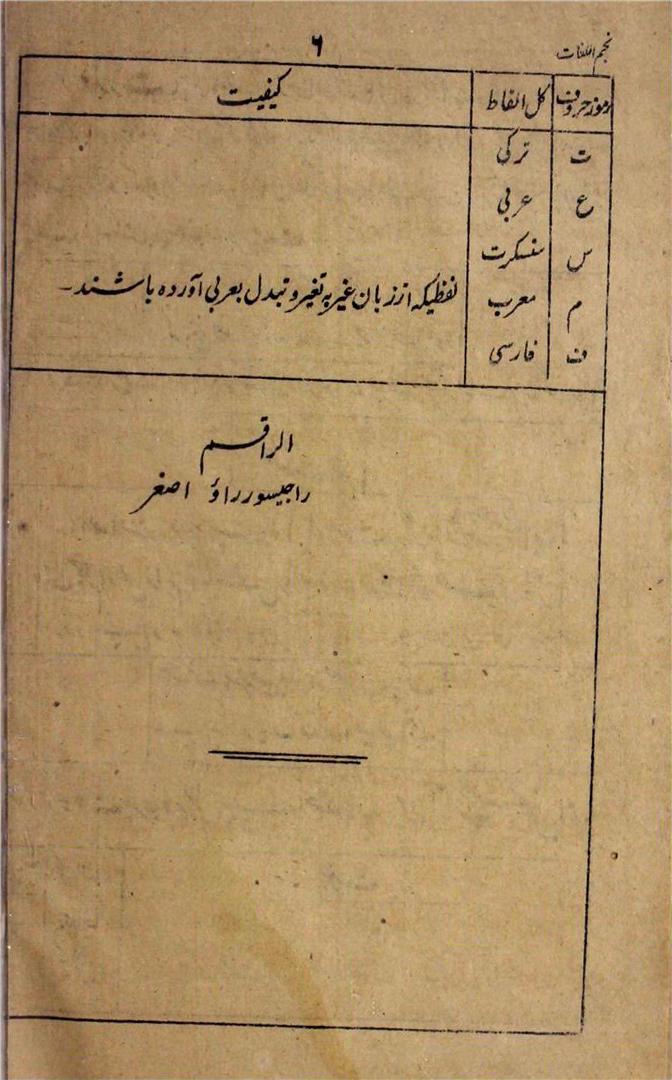 نجم اللغات
۶
رموز حروف کل الفاظ کیفیت
ت ترکی
ع عربی
س سنسکرت
م معرب لفظیکہ از زبان غیر بہ تغیر و تبدل بعربی آوردہ باشند۔
ف فارسی
الراقم
راجیسور راؤ اصغر